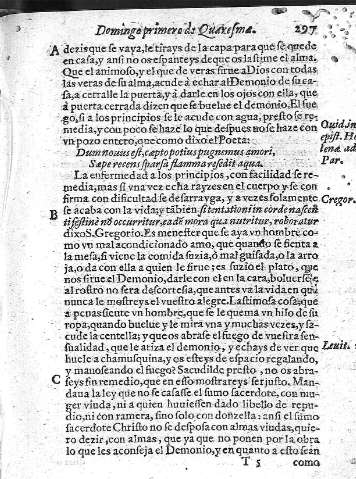 Domingo primero de Quaresma. 297
A dezis que se vaya, le tirays de la capa para que se quede
en casa, y ansi no os espanteys de que os lastime el alma.
Que el animoso, y el que de veras sirue a Dios con todas
las veras de su alma, acude à echar al Demonio de su ca-
sa, a cerralle la puerta, y à darle en los ojos con ella, que
à puerta cerrada dizen que se buelue el demonio. El fue
go, si a los principios se le acude con agua, presto se re-
media, y con poco se haze lo que despues no se haze con
vn pozo entero, que como dixo el Poeta:
Dum nouus est, cæpto potius pugnemus amori,
Sæpe recens sparsa flamma resedit aqua.
Ouid. in
epist. He
lenæ ad
Par.
La enfermedad a los principios, con facilidad se re-
media, mas si vna vez echa rayzes en el cuerpo y se con
firma con dificultad se desarrayga, y a vezes solamente
se acaba con la vida: y tãbien si tentationi in corde nascen
B ti festinè nõ occurritur, ea de mora qua nutritur, roboratur
Gregor.
dixo S. Gregorio. Es menester que se aya vn hombre como
vn mal acondicionado amo, que quando se sienta a
la mesa, si viene la comida suzia, ò mal guisada, o la arro
ja, o da con ella a quien le sirue: es suzio el plato, que
nos sirue el Demonio, darle con el en la cara, boluerse
al rostro no sera descortesia, que antes va la vida en
nunca le mostreys el vuestro alegre. Lastimosa cosa, que
a penas siente vn hombre, que se le quema vn hilo de su
ropa, quando buelue y le mira vna y muchas vezes, y sa-
cude la centella; y que os abrase el fuego de vuestra sen-
sualidad, que le atiza el demonio, y echays de ver que
Leuit.
huele a chamusquina, y os esteys de espacio regalando,
y manoseando el fuego? Sacudilde presto, no os abra-
C seys sin remedio, que en esso mostrareys ser justo. Man-
daua la ley que no se casasse el sumo sacerdote, con mu-
ger viuda, ni a quien huuiessen dado libello de repu-
dio, ni con ramera, sino solo con donzella: ansi el sumo
sacerdote Christo no se desposa con almas viudas, quie-
ro dezir, con almas, que ya que no ponen por la obra
lo que les aconseja el Demonio, y en quanto a esto seãn
T 5 como